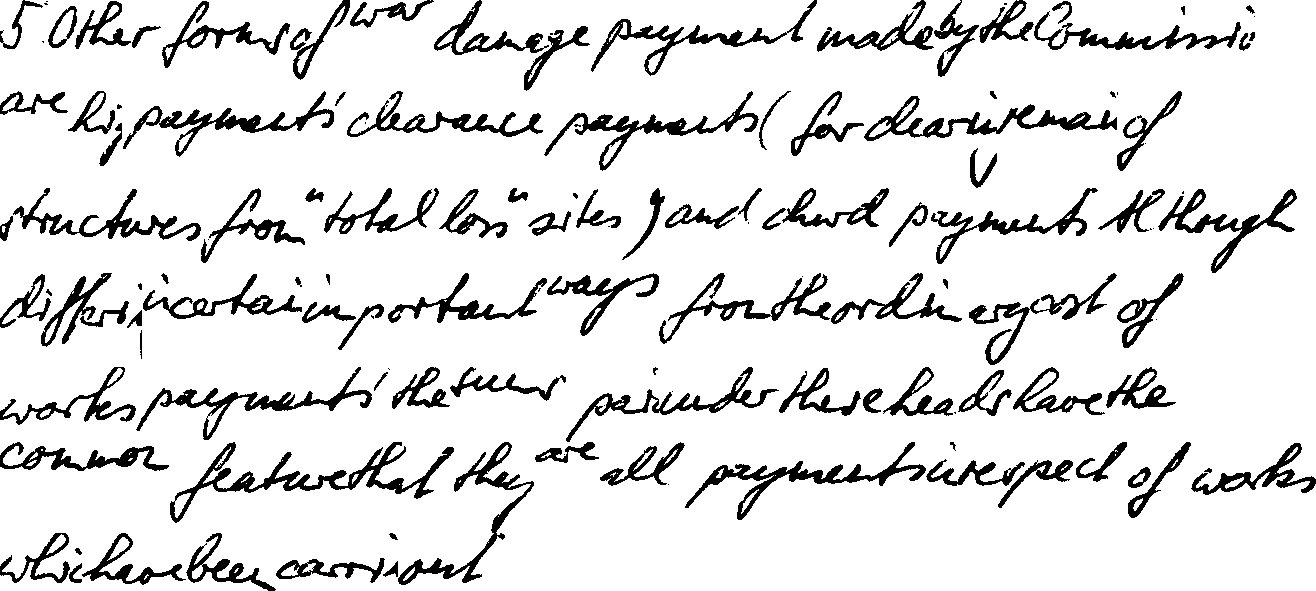 5 Other forms of war damage payment made by the Commissio
are payments' clearance payments ( for clearin remain of
structures from "total loss" sites ) and payments Although
differin in certai important ways from the ordinary cost of
works payments' the sums pai under these heads have the
common feature that they are all payments i respect of works
which have been carri out